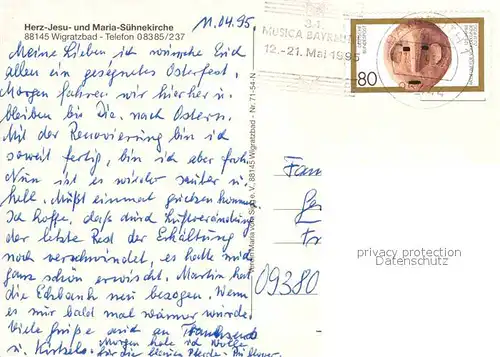 Herz-Jesu- und Maria-Sühnekirche
88145 Wigratzbad - Telefon 08385/237
11.04.95
Meine Lieben ich wünsche Euch
allen ein geségnetes Osterfest.
Morgen fahren wir hierher u.
bleiben bis Die. nach Ostern.
Mit der Renovierung bin ich
soweit fertig, bin ich aber froh.
Nun ist es wieder sauber u.
hell. Müßt einmal gucken kommen.
Ich hoffe, daß durch Luftveränderung
der letzte Rest der Erkältung
noch verschwindet, es hatte mich
ganz schön erwischt. Martin hat
die Eckbank neu bezogen. Wenn
es nur bald mal wärmer würde.
Viele Grüße auch an
u. Morgen hole ich Wolle
für die kleinen Pferde-
Verein Maria vom Sieg e. V., 88145 Wigratzbad - Nr. 71-54-N
MUSICA BAYREUTH
12.-21. Mai 1995
80
DEUTSCHE BUNDESPOST
Fam
09380
privacy protection
Datenschutz